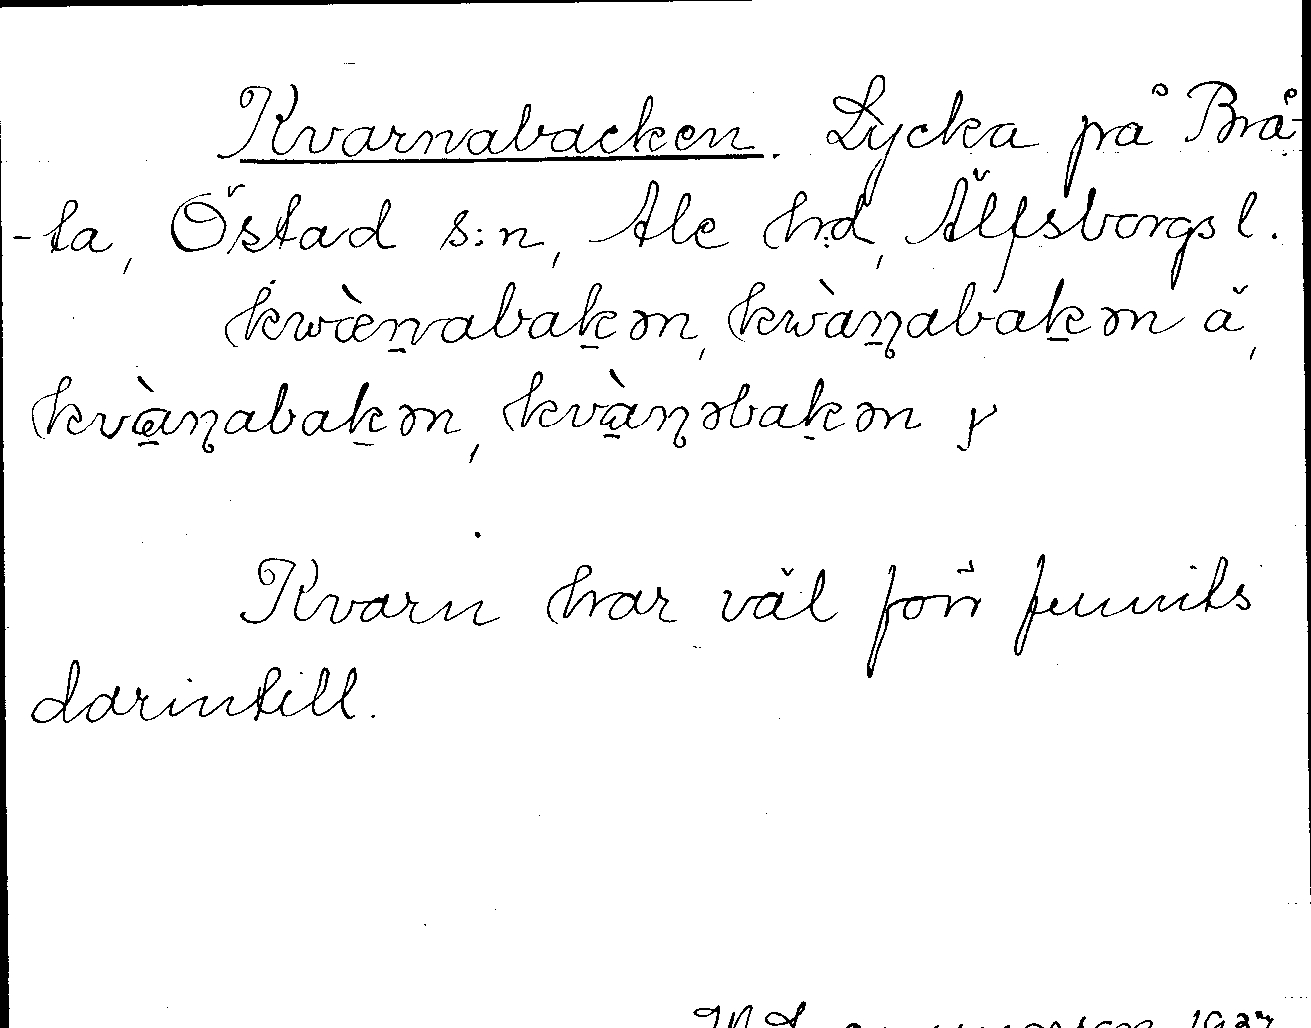 Kvarnabacken. Lycka på Brå-
-ta, Östad s:n, Ale hd, Älfsborgs l.
kwæ̀n̠abak̠ən, kwàn̠abak̠ən ä,
kvàṇabak̠ən, kvàṇəbak̠ən y
Kvarn har väl förr funnits
därintill.
1927